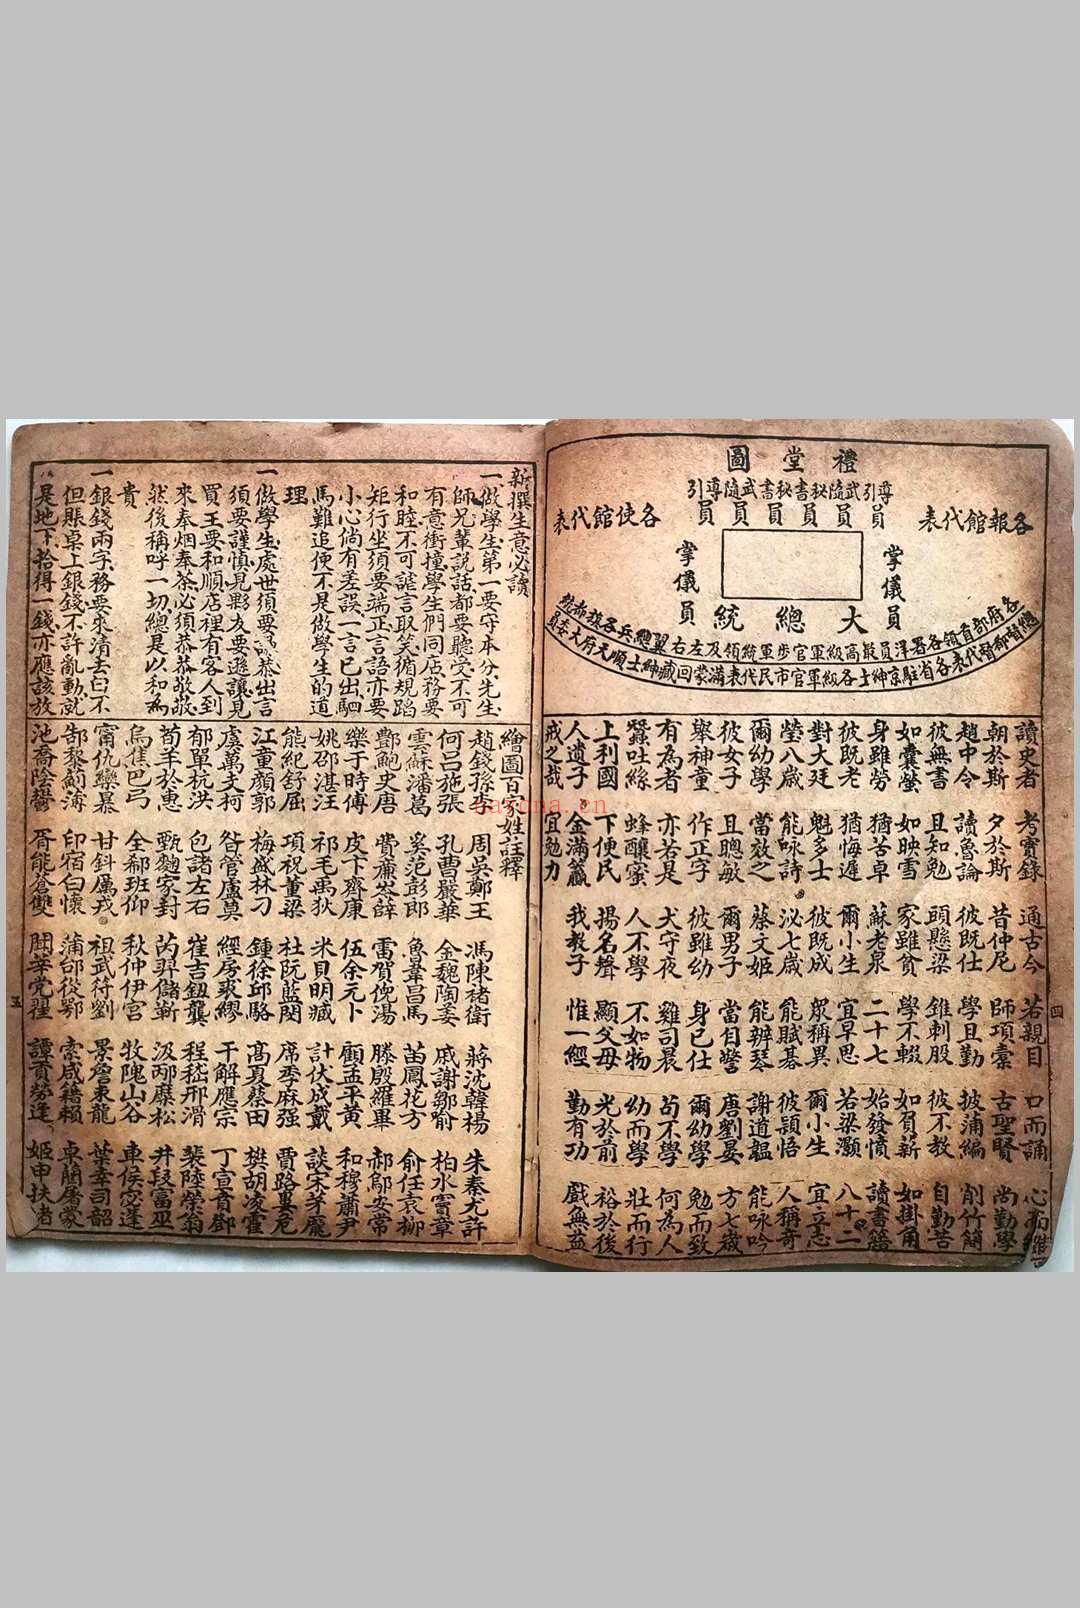 禮堂圖
導引武隨秘書秘書武隨導引
員員員員員員
各報館代表
各使館代表
掌儀員
掌儀員
大總統
各府部首領各署洋員最高級軍官步軍統領及左右翼總兵各旗都統
總督都督代表各省駐京紳士各級軍官市民代表滿蒙回藏紳士順天府大委員
讀史者 考實錄 通古今 若親目 口而誦 心而維
朝於斯 夕於斯 昔仲尼 師項橐 古聖賢 尚勤學
趙中令 讀魯論 彼既仕 學且勤 披蒲編 削竹簡
彼無書 且知勉 頭懸梁 錐刺股 彼不教 自勤苦
如囊螢 如映雪 家雖貧 學不輟 如負薪 如掛角
身雖勞 猶苦卓 蘇老泉 二十七 始發憤 讀書籍
彼既老 猶悔遲 爾小生 宜早思 若梁灝 八十二
對大廷 魁多士 彼既成 眾稱異 爾小生 宜立志
瑩八歲 能咏詩 泌七歲 能賦碁 彼頴悟 人稱奇
爾幼學 當效之 蔡文姬 能辨琴 謝道韞 能咏吟
彼女子 且聰敏 爾男子 當自警 唐劉晏 方七歲
舉神童 作正字 彼雖幼 身已仕 爾幼學 勉而致
有為者 亦若是 犬守夜 雞司晨 苟不學 何為人
蠶吐絲 蜂釀蜜 人不學 不如物 幼而學 壯而行
上利國 下便民 揚名聲 顯父母 光於前 裕於後
人遺子 金滿籯 我教子 惟一經 勤有功 戲無益
戒之哉 宜勉力
四
新撰生意必讀
一做學生第一要守本分先生
師兄輩說話都要聽受不可
有意衝撞學生們同店務要
和睦不可謊言取笑循規蹈
矩行坐須要端正言語亦要
小心倘有差誤一言已出駟
馬難追便不是做學生的道
理
一做學生處世須要謙恭出言
須要謹慎見夥友要遜讓見
買主要和順店裡有客人到
來奉烟奉茶必須恭恭敬敬
然後稱呼一切總是以和為
貴
一銀錢兩字務要來清去白不
但賬桌上銀錢不許亂動就
是地下拾得一錢亦應該放
繪圖百家姓註釋
趙錢孫李 周吳鄭王 馮陳褚衛 蔣沈韓楊 朱秦尤許
何呂施張 孔曹嚴華 金魏陶姜 戚謝鄒喻 柏水竇章
雲蘇潘葛 奚范彭郎 魯韋昌馬 苗鳳花方 俞任袁柳
酆鮑史唐 費廉岑薛 雷賀倪湯 滕殷羅畢 郝鄔安常
樂于時傅 皮卞齊康 伍余元卜 顧孟平黃 和穆蕭尹
姚邵湛汪 祁毛禹狄 米貝明臧 計伏成戴 談宋茅龐
熊紀舒屈 項祝董梁 杜阮藍閔 席季麻强 賈路婁危
江童顏郭 梅盛林刁 鍾徐邱駱 高夏蔡田 樊胡凌霍
虞萬支柯 昝管盧莫 經房裘繆 干解應宗 丁宣賁鄧
郁單杭洪 包諸左石 崔吉鈕龔 程嵇邢滑 裴陸榮翁
荀羊於惠 甄麴家封 芮羿儲靳 汲邴糜松 井段富巫
烏焦巴弓 全郗班仰 秋仲伊宮 牧隗山谷 車侯宓蓬
甯仇欒暴 甘鈄厲戎 祖武符劉 景詹束龍 葉幸司韶
郜黎薊薄 印宿白懷 蒲邰從鄂 索咸籍賴 卓藺屠蒙
池喬陰鬱 胥能蒼雙 聞莘党翟 譚貢勞逄 姬申扶堵
五